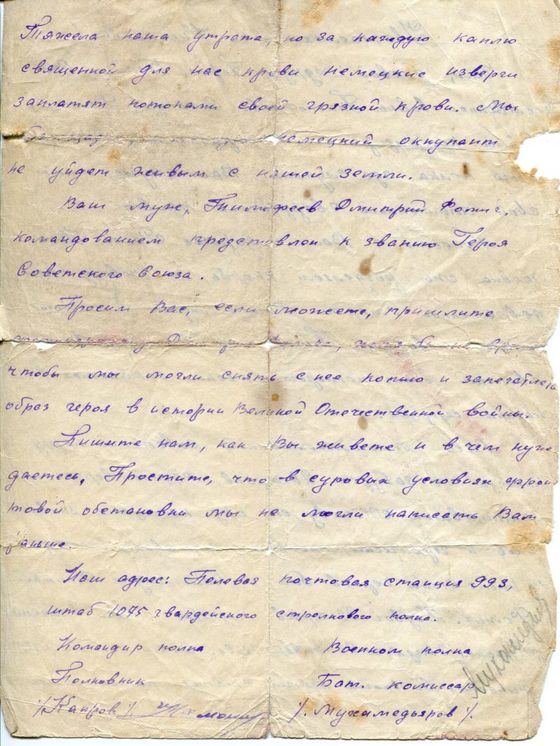 Тяжела наша утрата, но за каждую каплю
священной для нас крови немецкие изверги
заплатят потоками своей грязной крови. Мы
немецкий оккупант
не уйдет живым с нашей земли.
Ваш муж, Тимофеев Дмитрий Фомич.
командованием представлен к званию Героя
Советского Союза.
Просим Вас, если можете, пришлите
чтобы мы могли снять с нее копию и запечатлеть
образ героя в истории Великой Отечественной войны.
Пишите нам, как Вы живете и в чем нуж
даетесь, Простите, что в суровых условиях фрон
товой обстановки мы не могли написать Вам
раньше.
Наш адрес: Полевая почтовая станция 993,
штаб 1075 гвардейского стрелкового полка.
Командир полка Военком полка
Полковник Бат. комиссар
/Капров/. /. Мухамедьяров /.